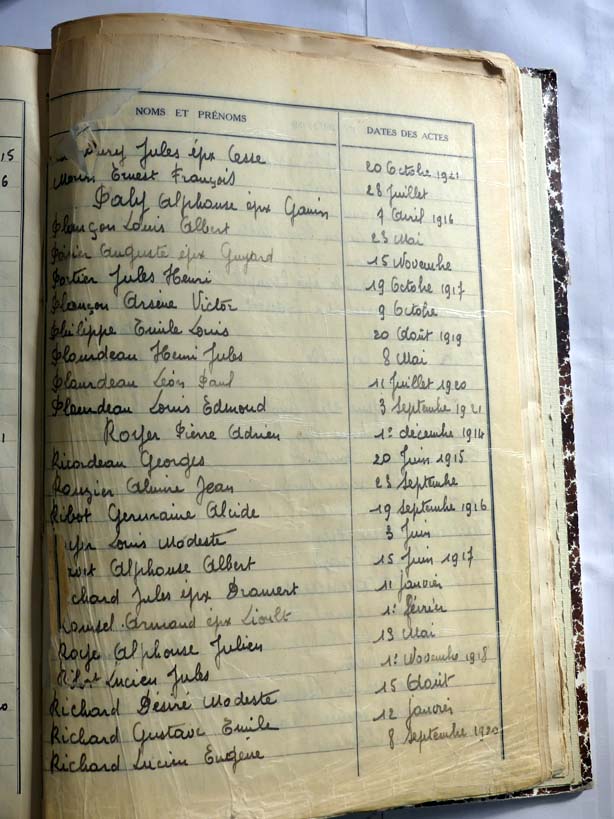 NOMS ET PRÉNOMS DATES DES ACTES
15
6
Jules épx Cosse 20 Octobre 1921
Morin Ernest François 28 Juillet
Paly Alphonse épx Ganin 9 Avril 1916
Plançon Louis Albert 23 Mai
Auguste épx Guyard 15 Novembre
Portier Jules Henri 19 Octobre 1917
Plançon Arsène Victor 9 Octobre
Philippe Emile Louis 20 Août 1919
Plaindeau Henri Jules 8 Mai
Plaindeau Léon Paul 11 Juillet 1920
Plaindeau Louis Edmond 3 Septembre 1921
Royer Pierre Adrien 1er décembre 1914
1
Ricordeau Georges 20 Juin 1915
Jean 23 Septembre
Ribot Germaine Alcide 19 Septembre 1916
Louis Modeste 3 Juin
Alphonse Albert 15 Juin 1917
chard Jules épx 11 Janvier
Armand épx 1er février
Roye Alphonse Julien 13 Mai
Lucien Jules 1er Novembre 1918
Richard Désiré Modeste 15 Août
Richard Gustave Emile 12 Janvier
Richard Lucien Eugène 8 Septembre 1920